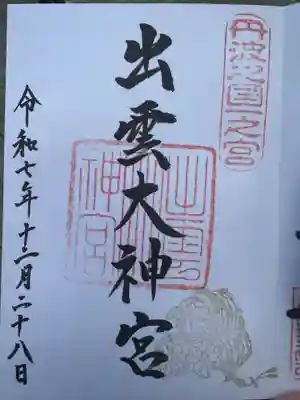 丹波之国一之宮
出雲大神宮
出雲大神宮
令和七年十二月二十八日